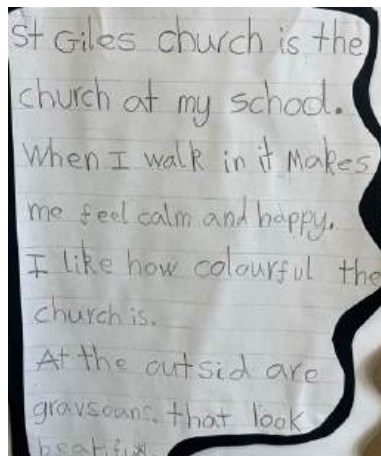 St Giles church is the
church at my school.
When I walk in it Makes
me feel calm and happy.
I like how colourful the
church is.
At the outsid are
gravsoans. that look
beatiful